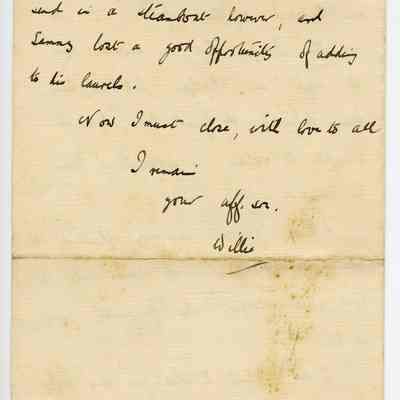 send in a steamboat however, and
Sammy lost a good opportunity of adding
to his laurels.
Now I must close, with love to all
I remain
your aff. son.
Willie